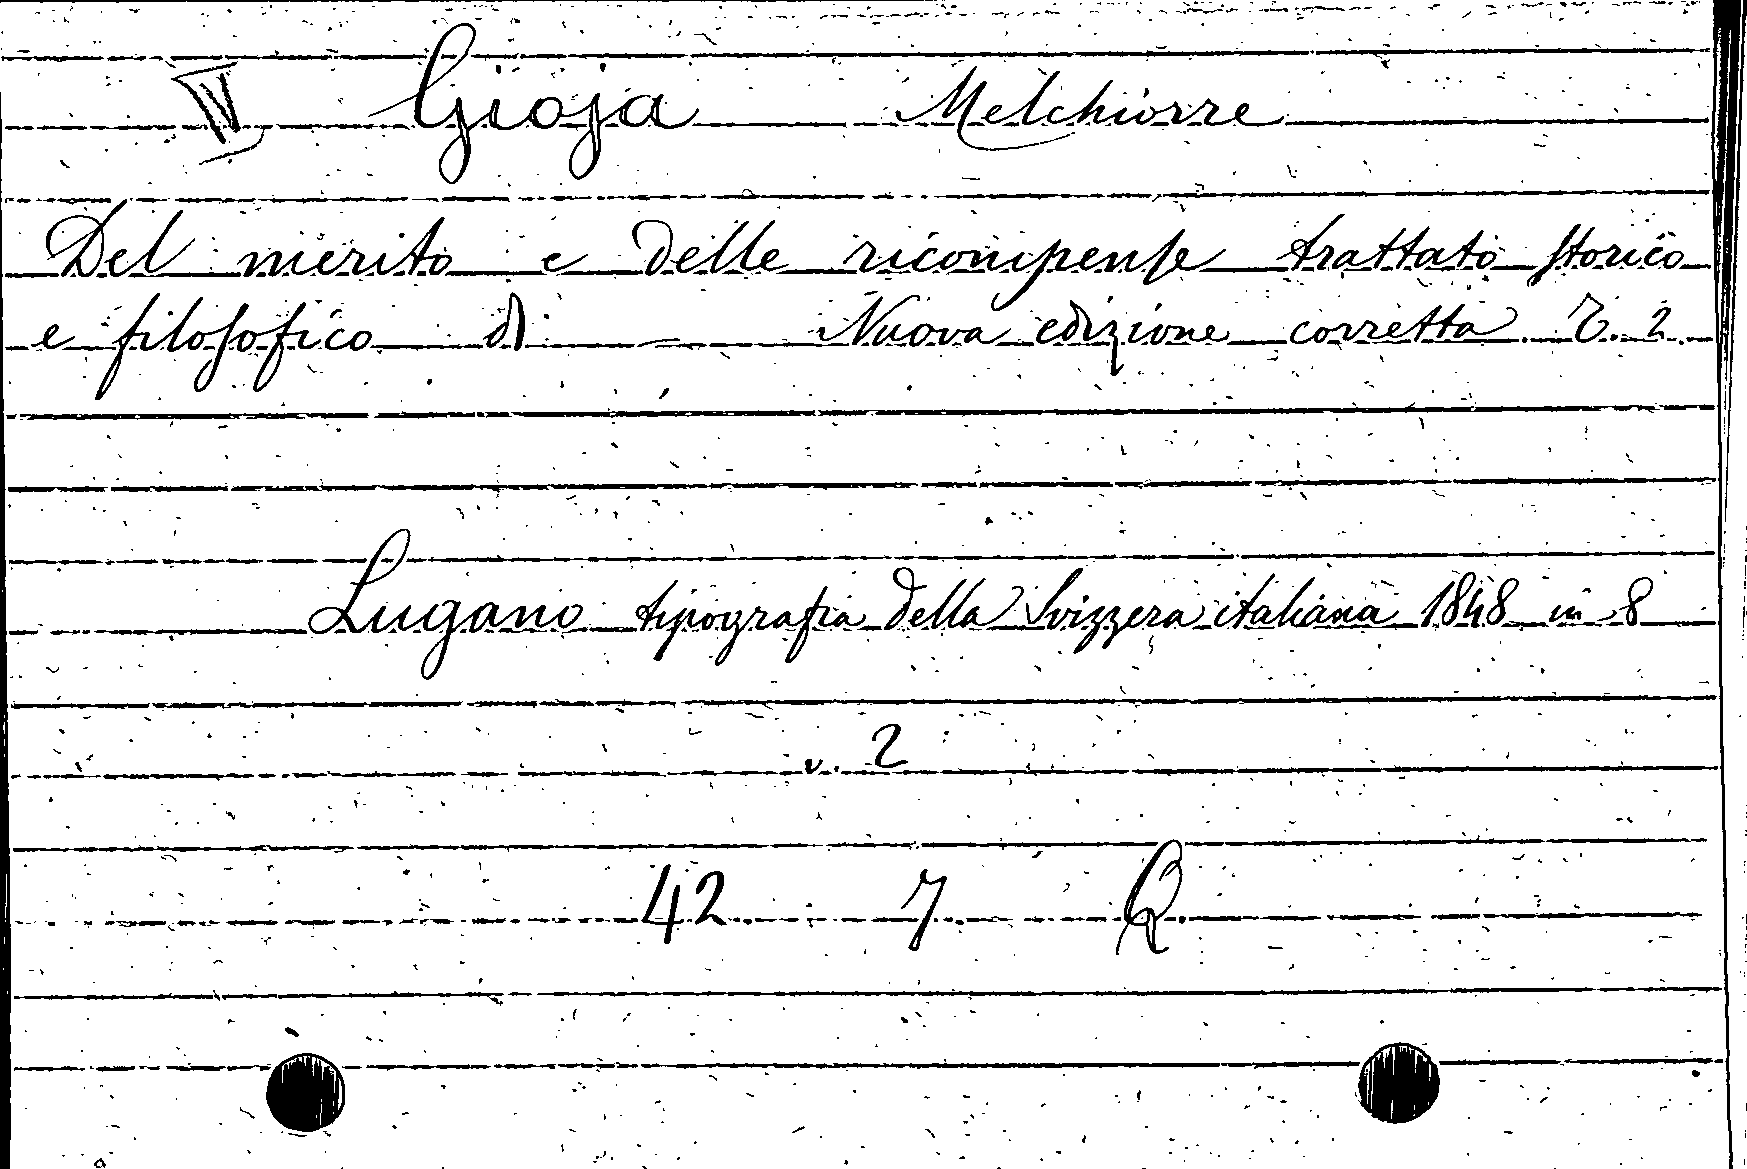 IV Gioja Melchiorre
Del merito e delle ricompense trattato storico
e filosofico di — Nuova edizione corretta T. 2.
Lugano tipografia della Svizzera italiana 1848 in 8
v. 2
42 7 Q